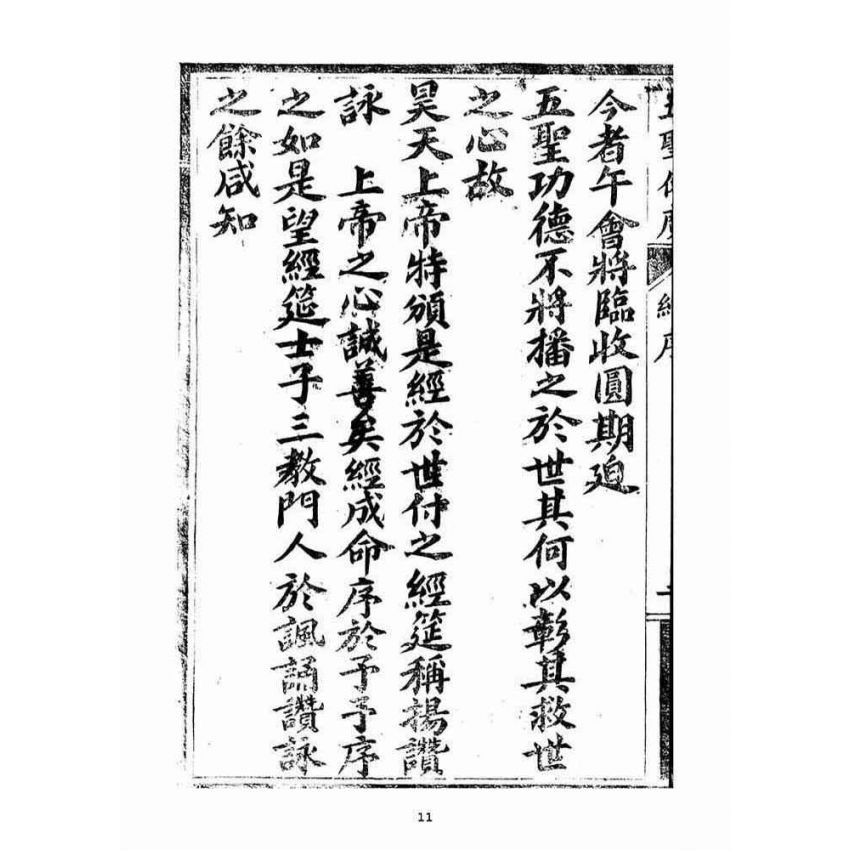 今者午會將臨收圓期廹
五聖功德不將播之於世其何以彰其救世
之心故
昊天上帝特頒是經於世付之經筵稱揚讚
詠　上帝之心誠善矣經成命序於予予序
之如是望經筵士子三教門人於諷誦讚詠
之餘咸知
11